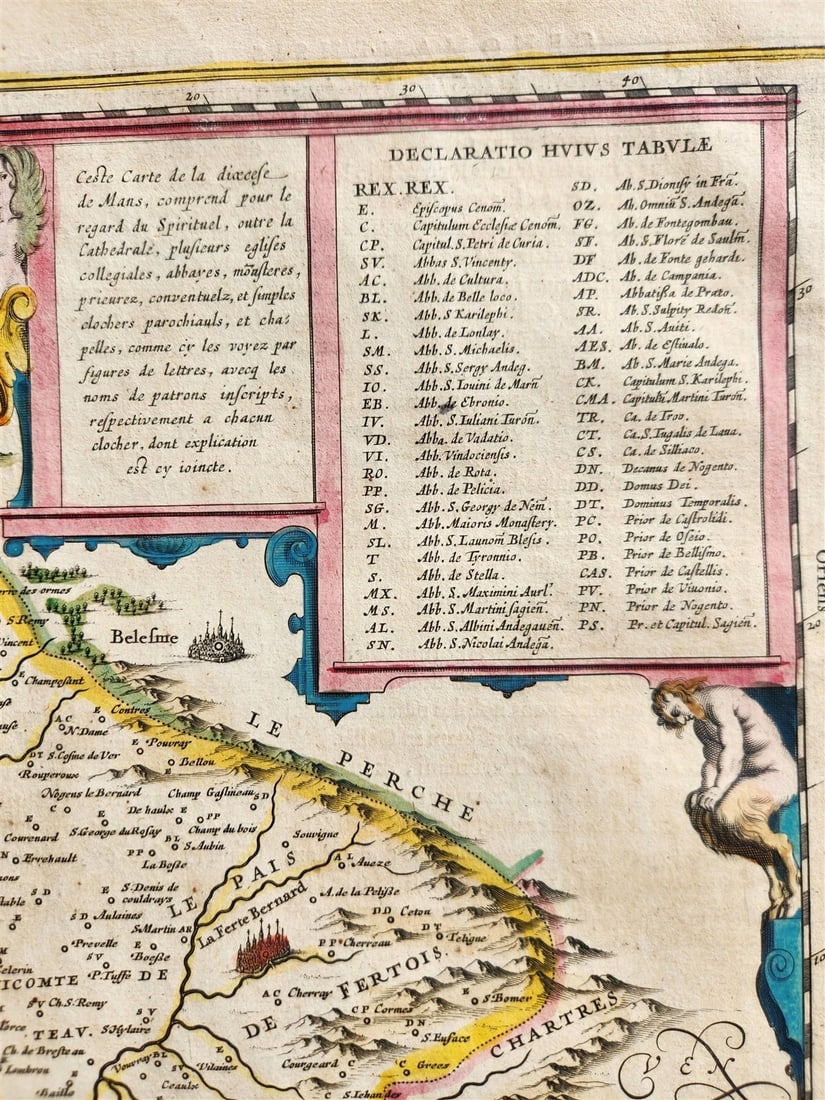 20
30
40
Ceste Carte de la diœcese
de Mans, comprend pour le
regard du Spirituel, outre la
Cathedrale, plusieurs eglises
collegiales, abbayes, mõnsteres,
prieurez, conventuelz, et simples
clochers parochiauls, et cha-
pelles, comme cy les voyez par
figures de lettres, avecq les
noms de patrons inscripts,
respectivement a chacun
clocher, dont explication
est cy ioincte.
DECLARATIO HVIVS TABVLÆ
REX. REX.
E. Episcopus Cenom̃.
C. Capitulum Ecclesiæ Cenom̃.
CP. Capitul. S. Petri de Curia.
SV. Abbas S. Vincenty.
AC. Abb. de Cultura.
BL. Abb. de Belle loco.
SK. Abb. S. Karilephi.
L. Abb. de Lonlay.
SM. Abb. S. Michaelis.
SS. Abb. S. Sergy Andeg.
IO. Abb. S. Iouini de Marñ
EB. Abb. de Ebronio.
IV. Abb. S. Iuliani Turoñ.
VD. Abba. de Vadatio.
VI. Abb. Vindociensis.
RO. Abb. de Rota.
PP. Abb. de Pelicia.
SG. Abb. S. Georgy de Nem̃.
M. Abb. Maioris Monastery.
SL. Abb. S. Launom̃ Blesis.
T Abb. de Tyronnio.
S. Abb. de Stella.
MX. Abb. S. Maximini Aurl̃.
MS. Abb. S. Martini sagieñ.
AL. Abb. S. Albini Andegaueñ.
SN. Abb. S. Nicolai Andegã.
SD. Ab. S. Dionisy in Frã.
OZ. Ab. Omniũ S. Andegã.
FG. Ab. de Fontegombau.
SF. Ab. S. Flore de Saulm̃.
DF Ab. de Fonte gehardi.
ADC. Ab. de Campania.
AP. Abbatißa de Prato.
SR. Ab. S. Sulpity Redoñ.
AA. Ab. S. Auiti.
AES. Ab. de Estiualo.
BM. Ab. S. Marie Andega.
CK. Capitulum S. Karilephi.
CMA. Capitulũ Martini Turoñ.
TR. Ca. de Troo.
CT. Ca. S. Tugalis de Laua.
CS. Ca. de Silliaco.
DN. Decanus de Nogento.
DD. Domus Dei.
DT. Dominus Temporalis.
PC. Prior de Castrolidi.
PO. Prior de Oseio.
PB. Prior de Bellismo.
CAS. Prior de Castellis.
PV. Prior de Viuonio.
PN. Prior de Nogento.
PS. Pr. et Capitul. Sagieñ.
30
20
10
des ormes
S. Remy
Vincent
Belesme
E
Champosant
E
Contres
AC
N. Dame
DT
S. Cosme de Ver
E
Pouvray
Bellou
Rouperoux
LE PERCHE
Nogens le Bernard
Champ Gaslineau
SD
C
E
De haulx
E
PP
Courenard
S. George du Rosay
Champ du bois
BL
S. Aubin
Souvigne
Errehault
PP
La Boße
AL
Aueze
LE PAIS
SD
E
S. Denis de
couldrays
A. de la Peliße
SD
Aulaines
S. Martin
AR
La Ferte Bernard
DD
Ceton
DT
Teligne
Prevelle
E
Boeße
SV
PP
Cherreau
VICOMTE DE
P. Tuffe
DE FERTOIS.
SV
Ch. S. Remy
SV
AC
Cherray
E
S. Bomer
CP
Cormes
TEAV.
S. Hylaire
DN
S. Euface
CHARTRES
Ch de Breste au
Vouvray
BL
SV
Vilaines
E
Lombron
Ceaulx
Courgeard
C
C
Grees
S. Iehan des
VEN